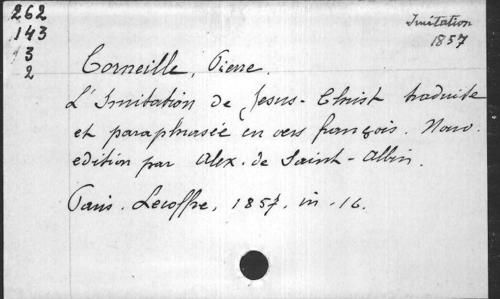 262
143
3
2
Imitation
1857
Corneille, Pierre.
L'Imitation de Jesus-Christ traduite
et paraphrasée en vers françois. Nouv.
edition par Alex. de Saint-Albin.
Paris. Lecoffre, 1857. in-16.